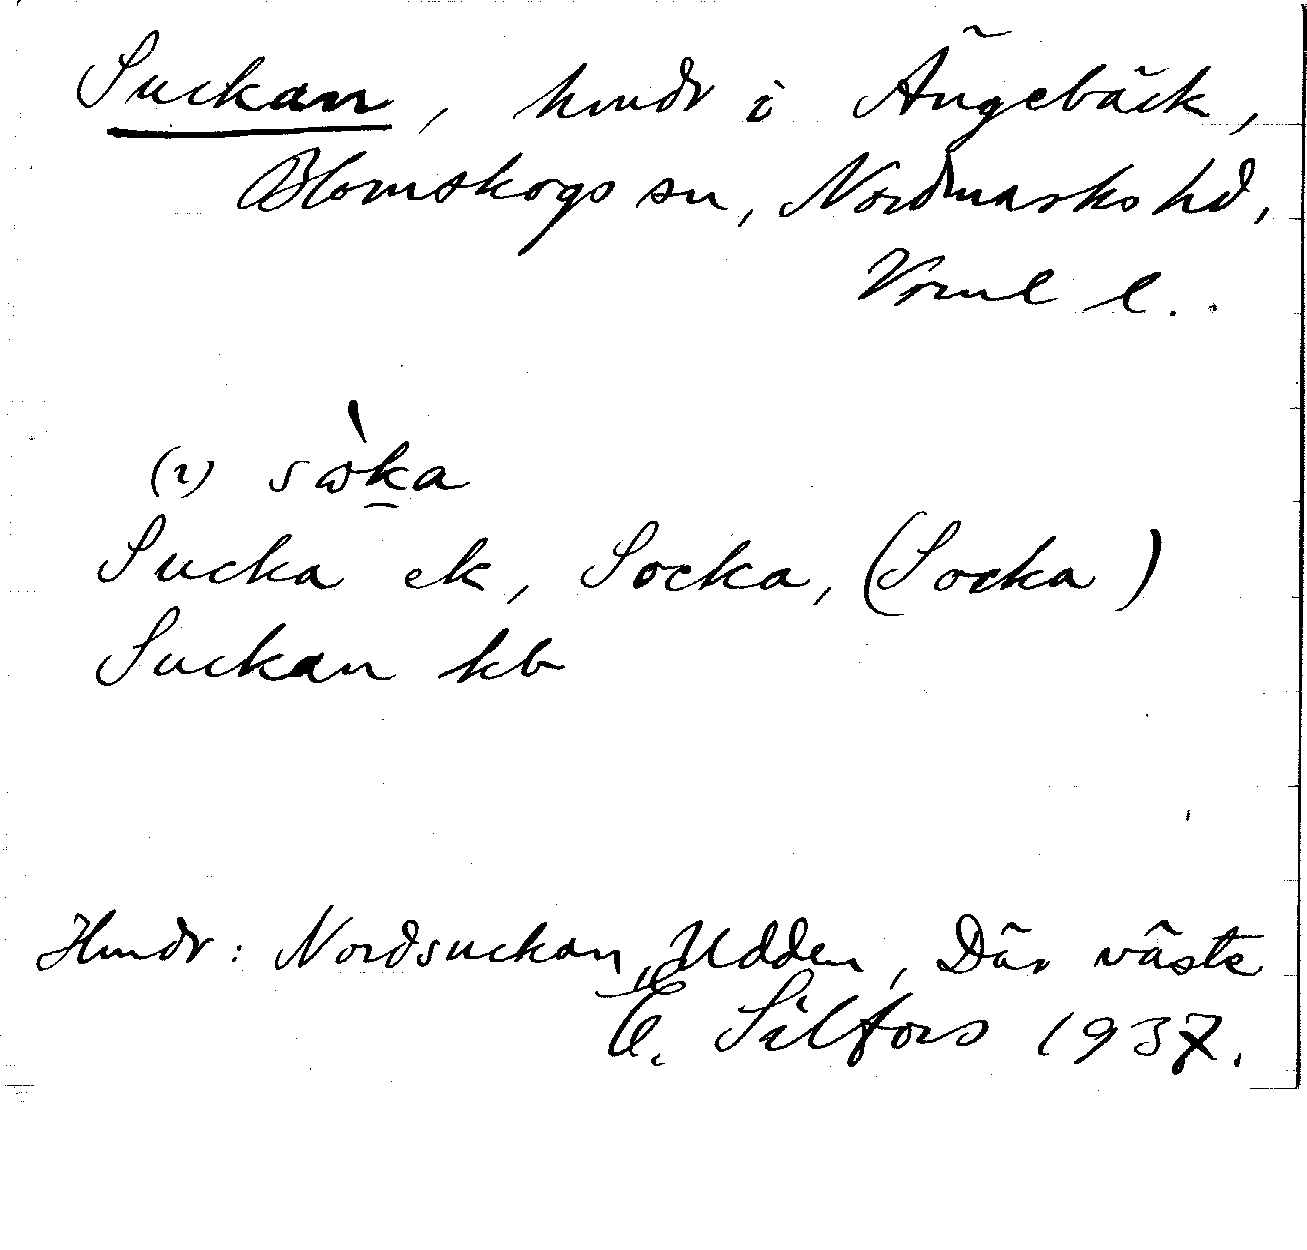 Suckan, hmdr i Ängebäck,
Blomskogs sn, Nordmarks hd,
Vrml l.
(i) sὼka
Sucka ek, Socka, (Socka)
Suckan kb
Hmdr: Nordsuckan, Udden, Där väste
E. Silfors 1937.